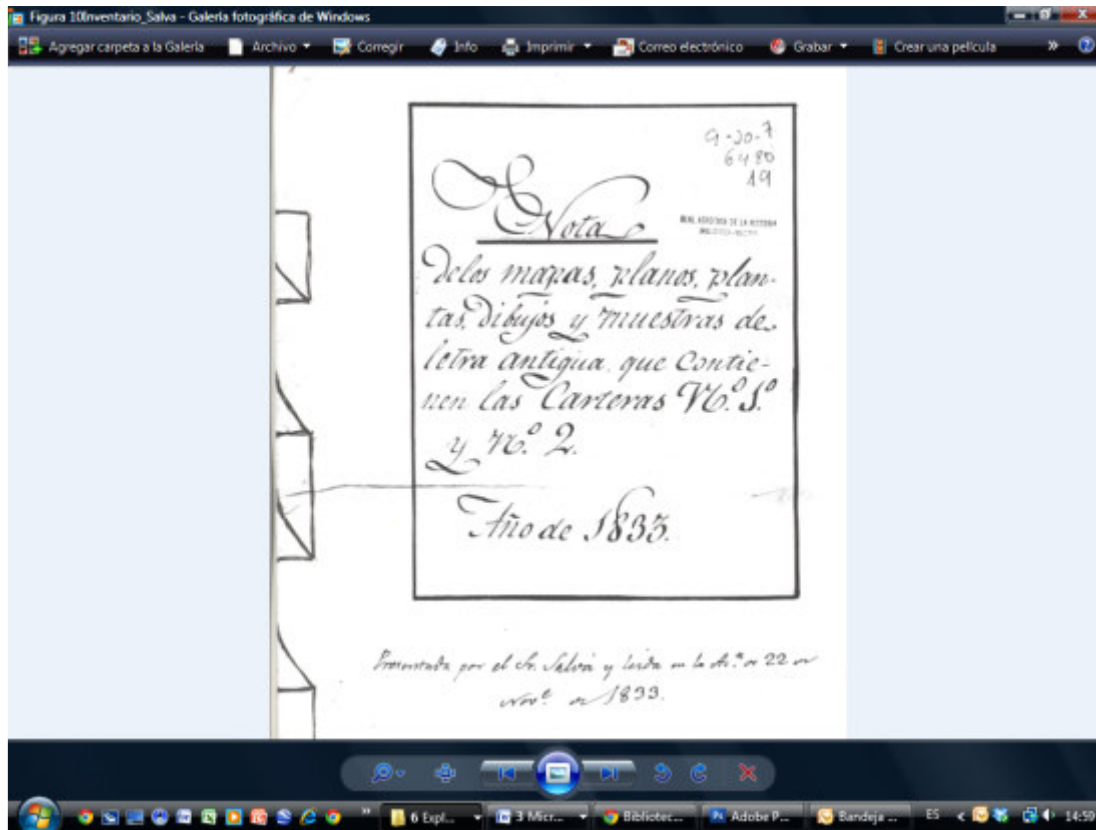 Figura 10Inventario_Salva - Galería fotográfica de Windows
Agregar carpeta a la Galería Archivo Corregir Info Imprimir Correo electrónico Grabar Crear una película »
9-20-7
6480
19
REAL ACADEMIA DE LA HISTORIA
Nota
De los mapas, planos, plan-
tas, Dibujos y muestras de
letra antigua que Contie-
nen las Carteras Nº. 1º
y Nº. 2.
Año de 1833.
Presentada por el Sr. Salvá y leida en la de 22 de
Nov.e de 1833.
" 6 Expl... 3 Micr... Bibliotec... Adobe P... Bandeja ... ES < 14:59